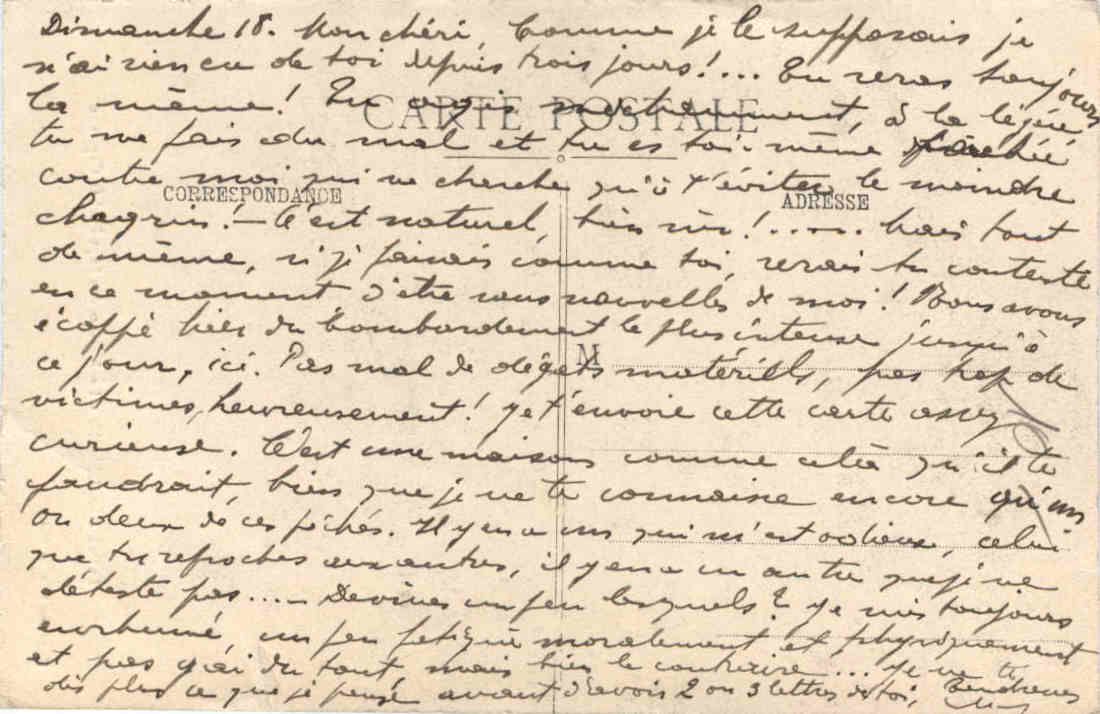 Dimanche 18. Mon chéri, Comme je le supposais je
n'ai rien eu de toi depuis trois jours!... Tu seras toujours
la même! Tu agis méchamment, à la légère
CARTE POSTALE
tu me fais du mal et tu es toi-même fâchée
contre moi qui ne cherche qu'à t'éviter le moindre
CORRESPONDANCE
ADRESSE
chagrin! - C'est naturel, bien sûr!..... Mais tout
de même, si je faisais comme toi, serais tu contente
en ce moment d'être sans nouvelles de moi! Nous avons
écoppé hier du bombardement le plus intense jusqu'à
M
ce jour, ici. Pas mal de dégats matériels, pas trop de
victimes, heureusement! Je t'envoie cette carte assez
curieuse. C'est une maison comme celà qu'il te
faudrait, bien que je ne te connaisse encore qu'un
ou deux de ces péchés. Il y en a un qui m'est odieux, celui
que tu reproches aux autres, il y en a un autre que je ne
déteste pas.... - Devines un peu lesquels? Je suis toujours
enrhumé, un peu fatigué moralement et physiquement
et pas gai du tout, mais bien le contraire... Je ne te
dis plus ce que je pense avant d'avoir 2 ou 3 lettres de toi, Tendresses